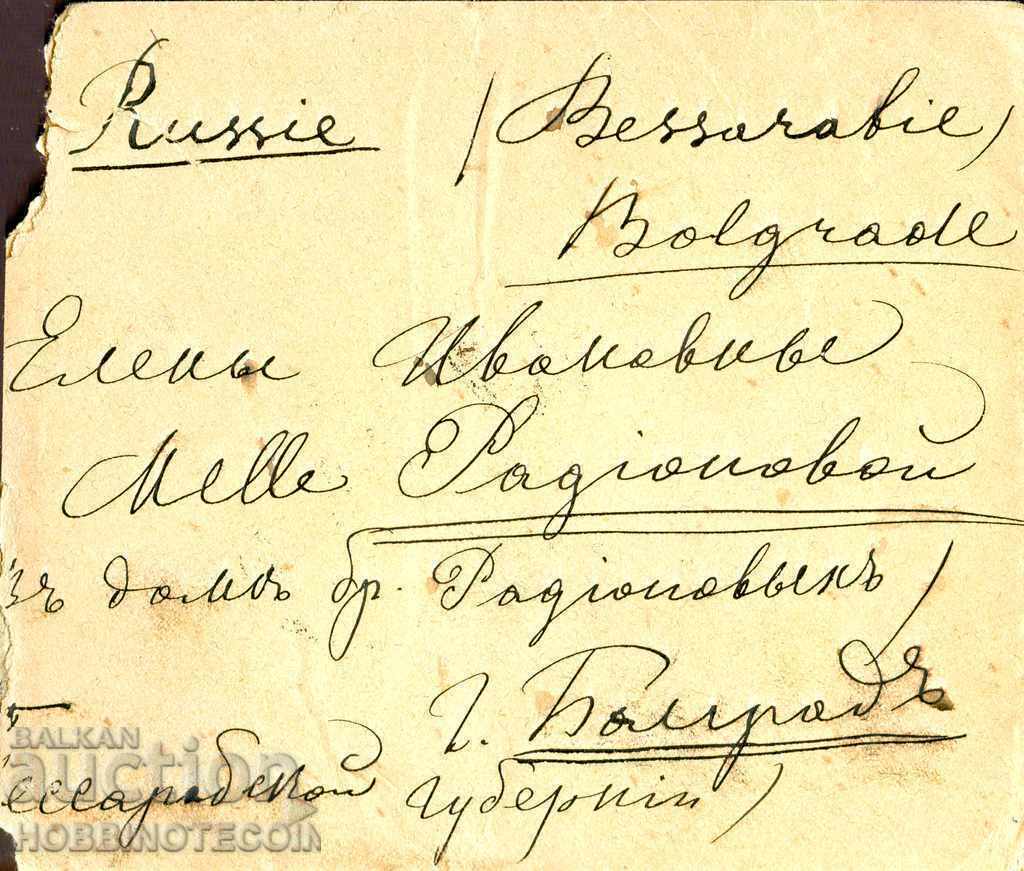 Russie (Bessarabie)
Bolgrade
Елены Ивановны
Melle Радіоновой
въ домъ бр. Радіоновыхъ
г. Болградъ
Бессарабской губерніи)
BALKAN
auction
HOBBINOTECOIN